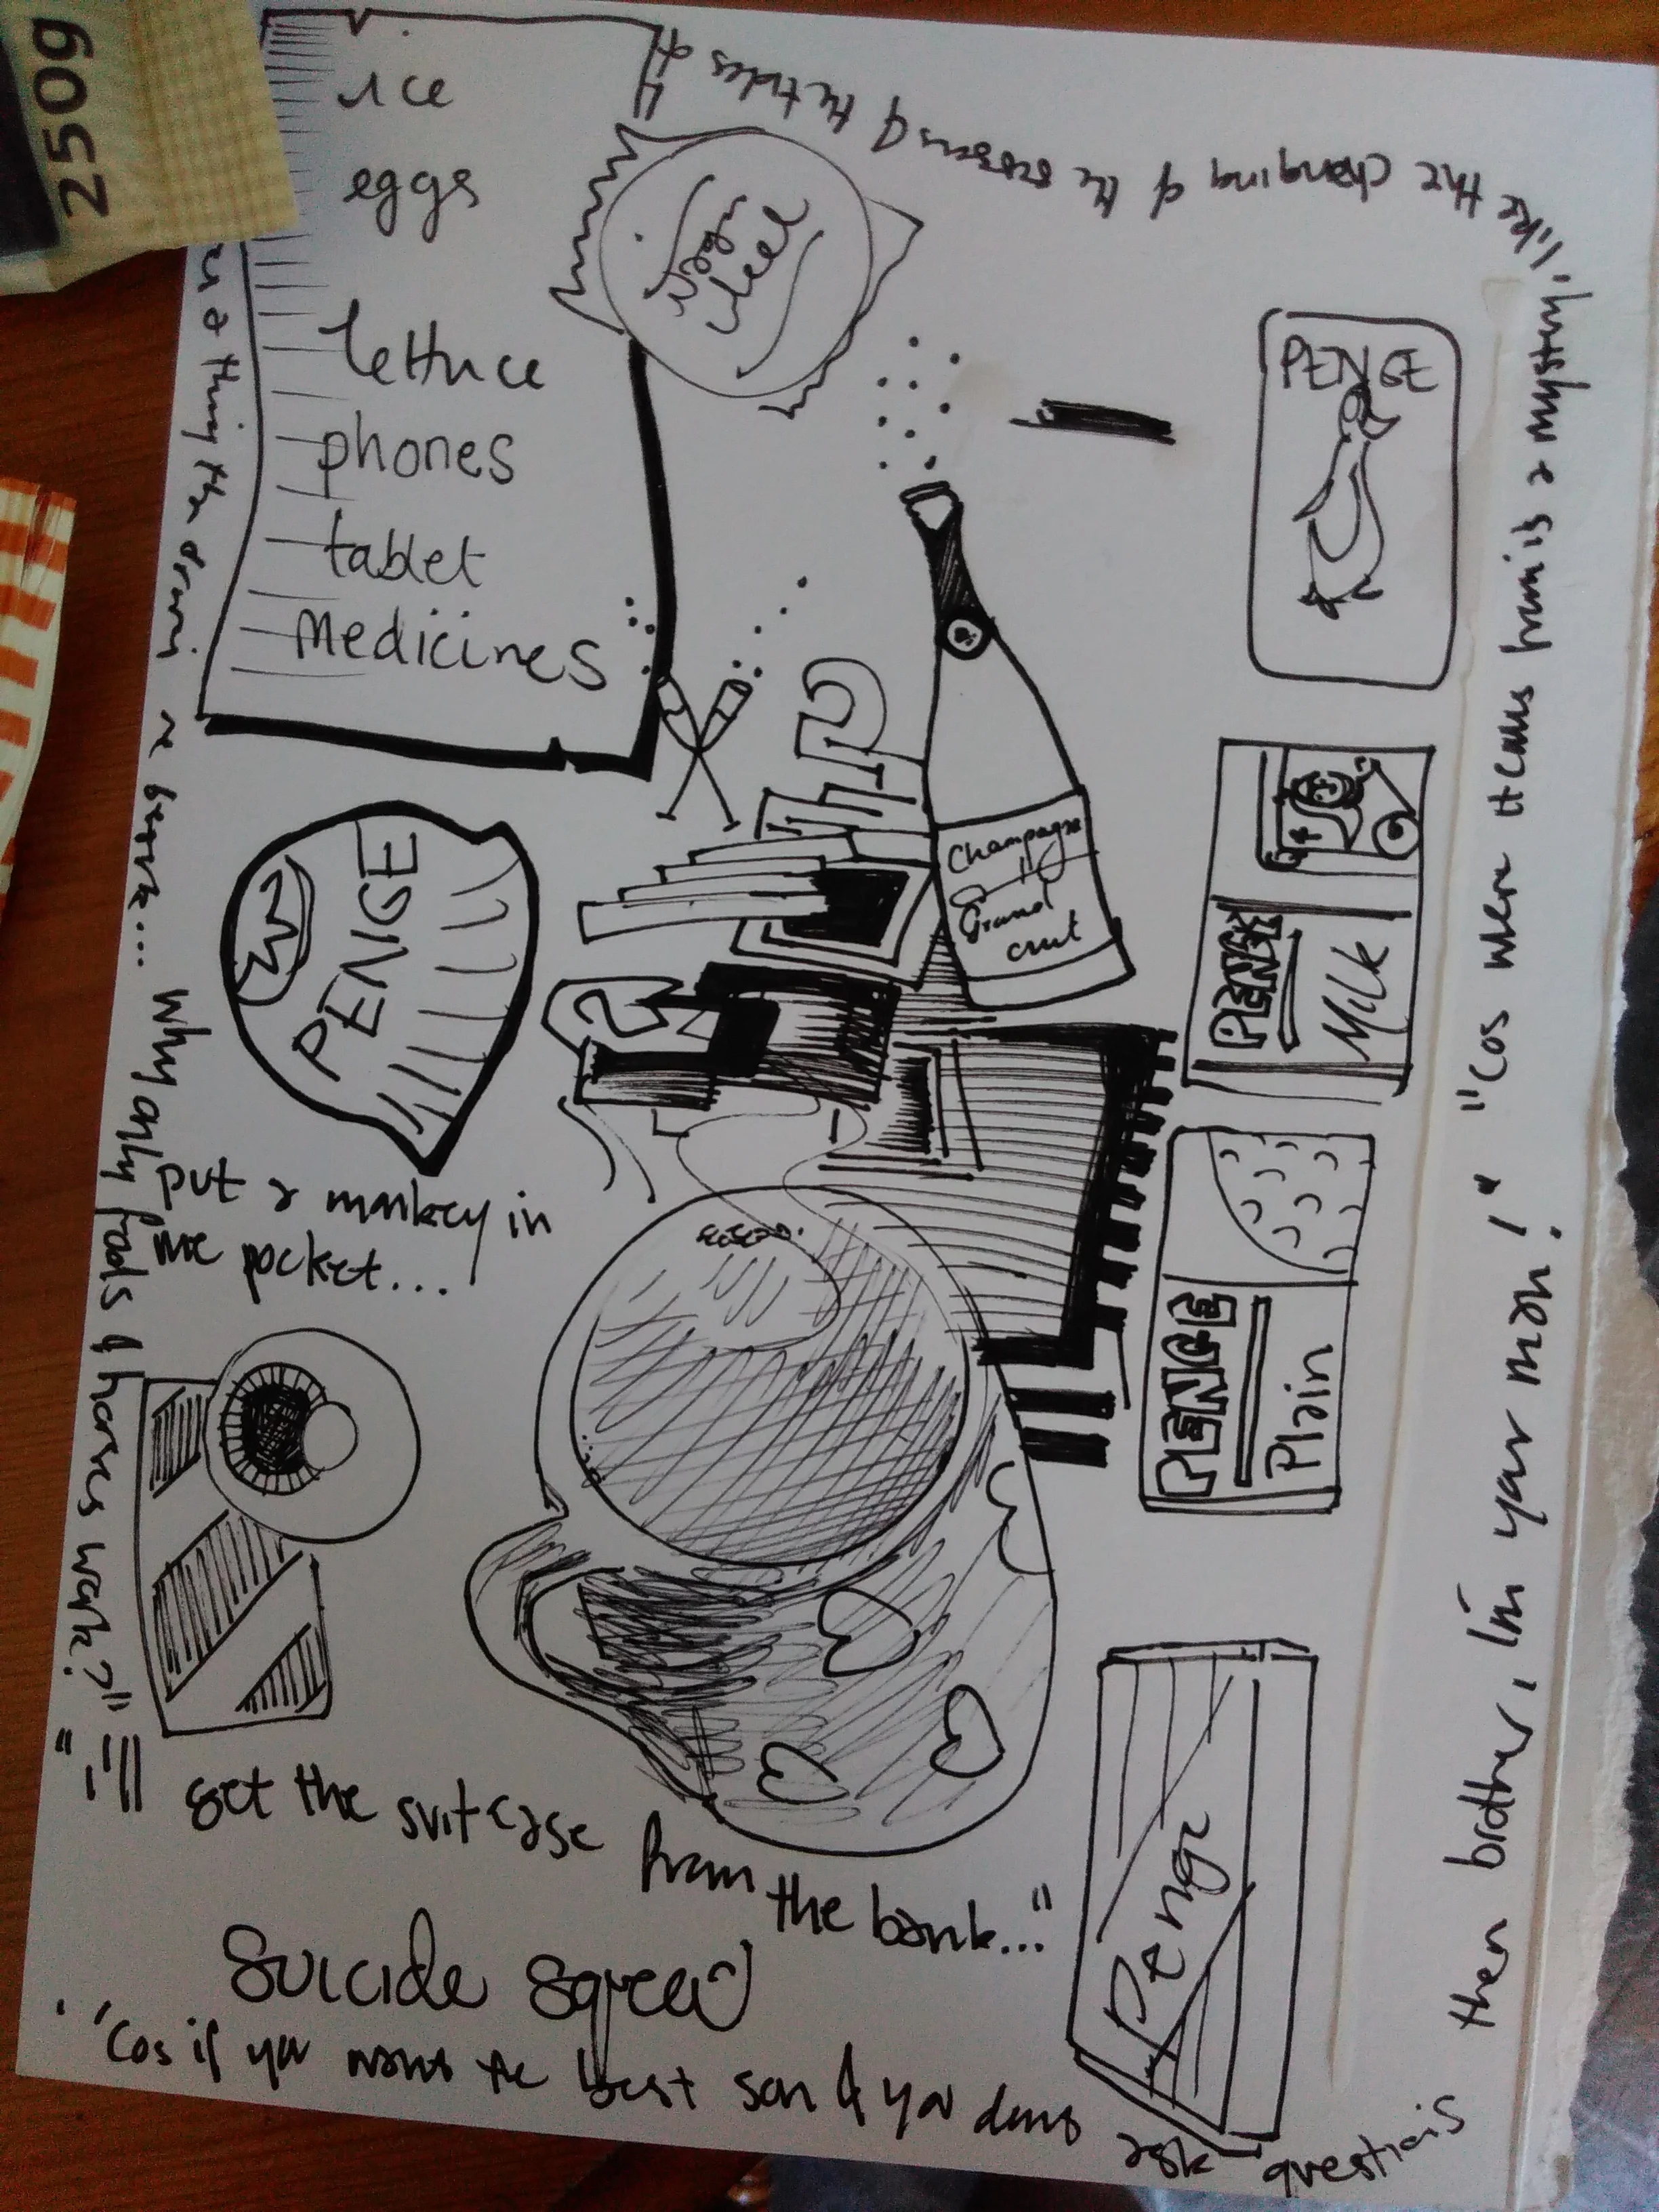 250g
ice
eggs
lettuce
phones
tablet
medicines
PENGE
PENGE
Champagne
Grand
crut
PENGE
Milk
PENGE
Plain
Penge
put a monkey in
me pocket...
get the suitcase from the bank..."
Suicide Squead
"Cos if you want the best son & you dons ask questions
then brother, I'm your man!"
"Cos where it cams from is a mystery,
like the changing of the seasons & the tides of
a thing the
why only fools & horses work?"